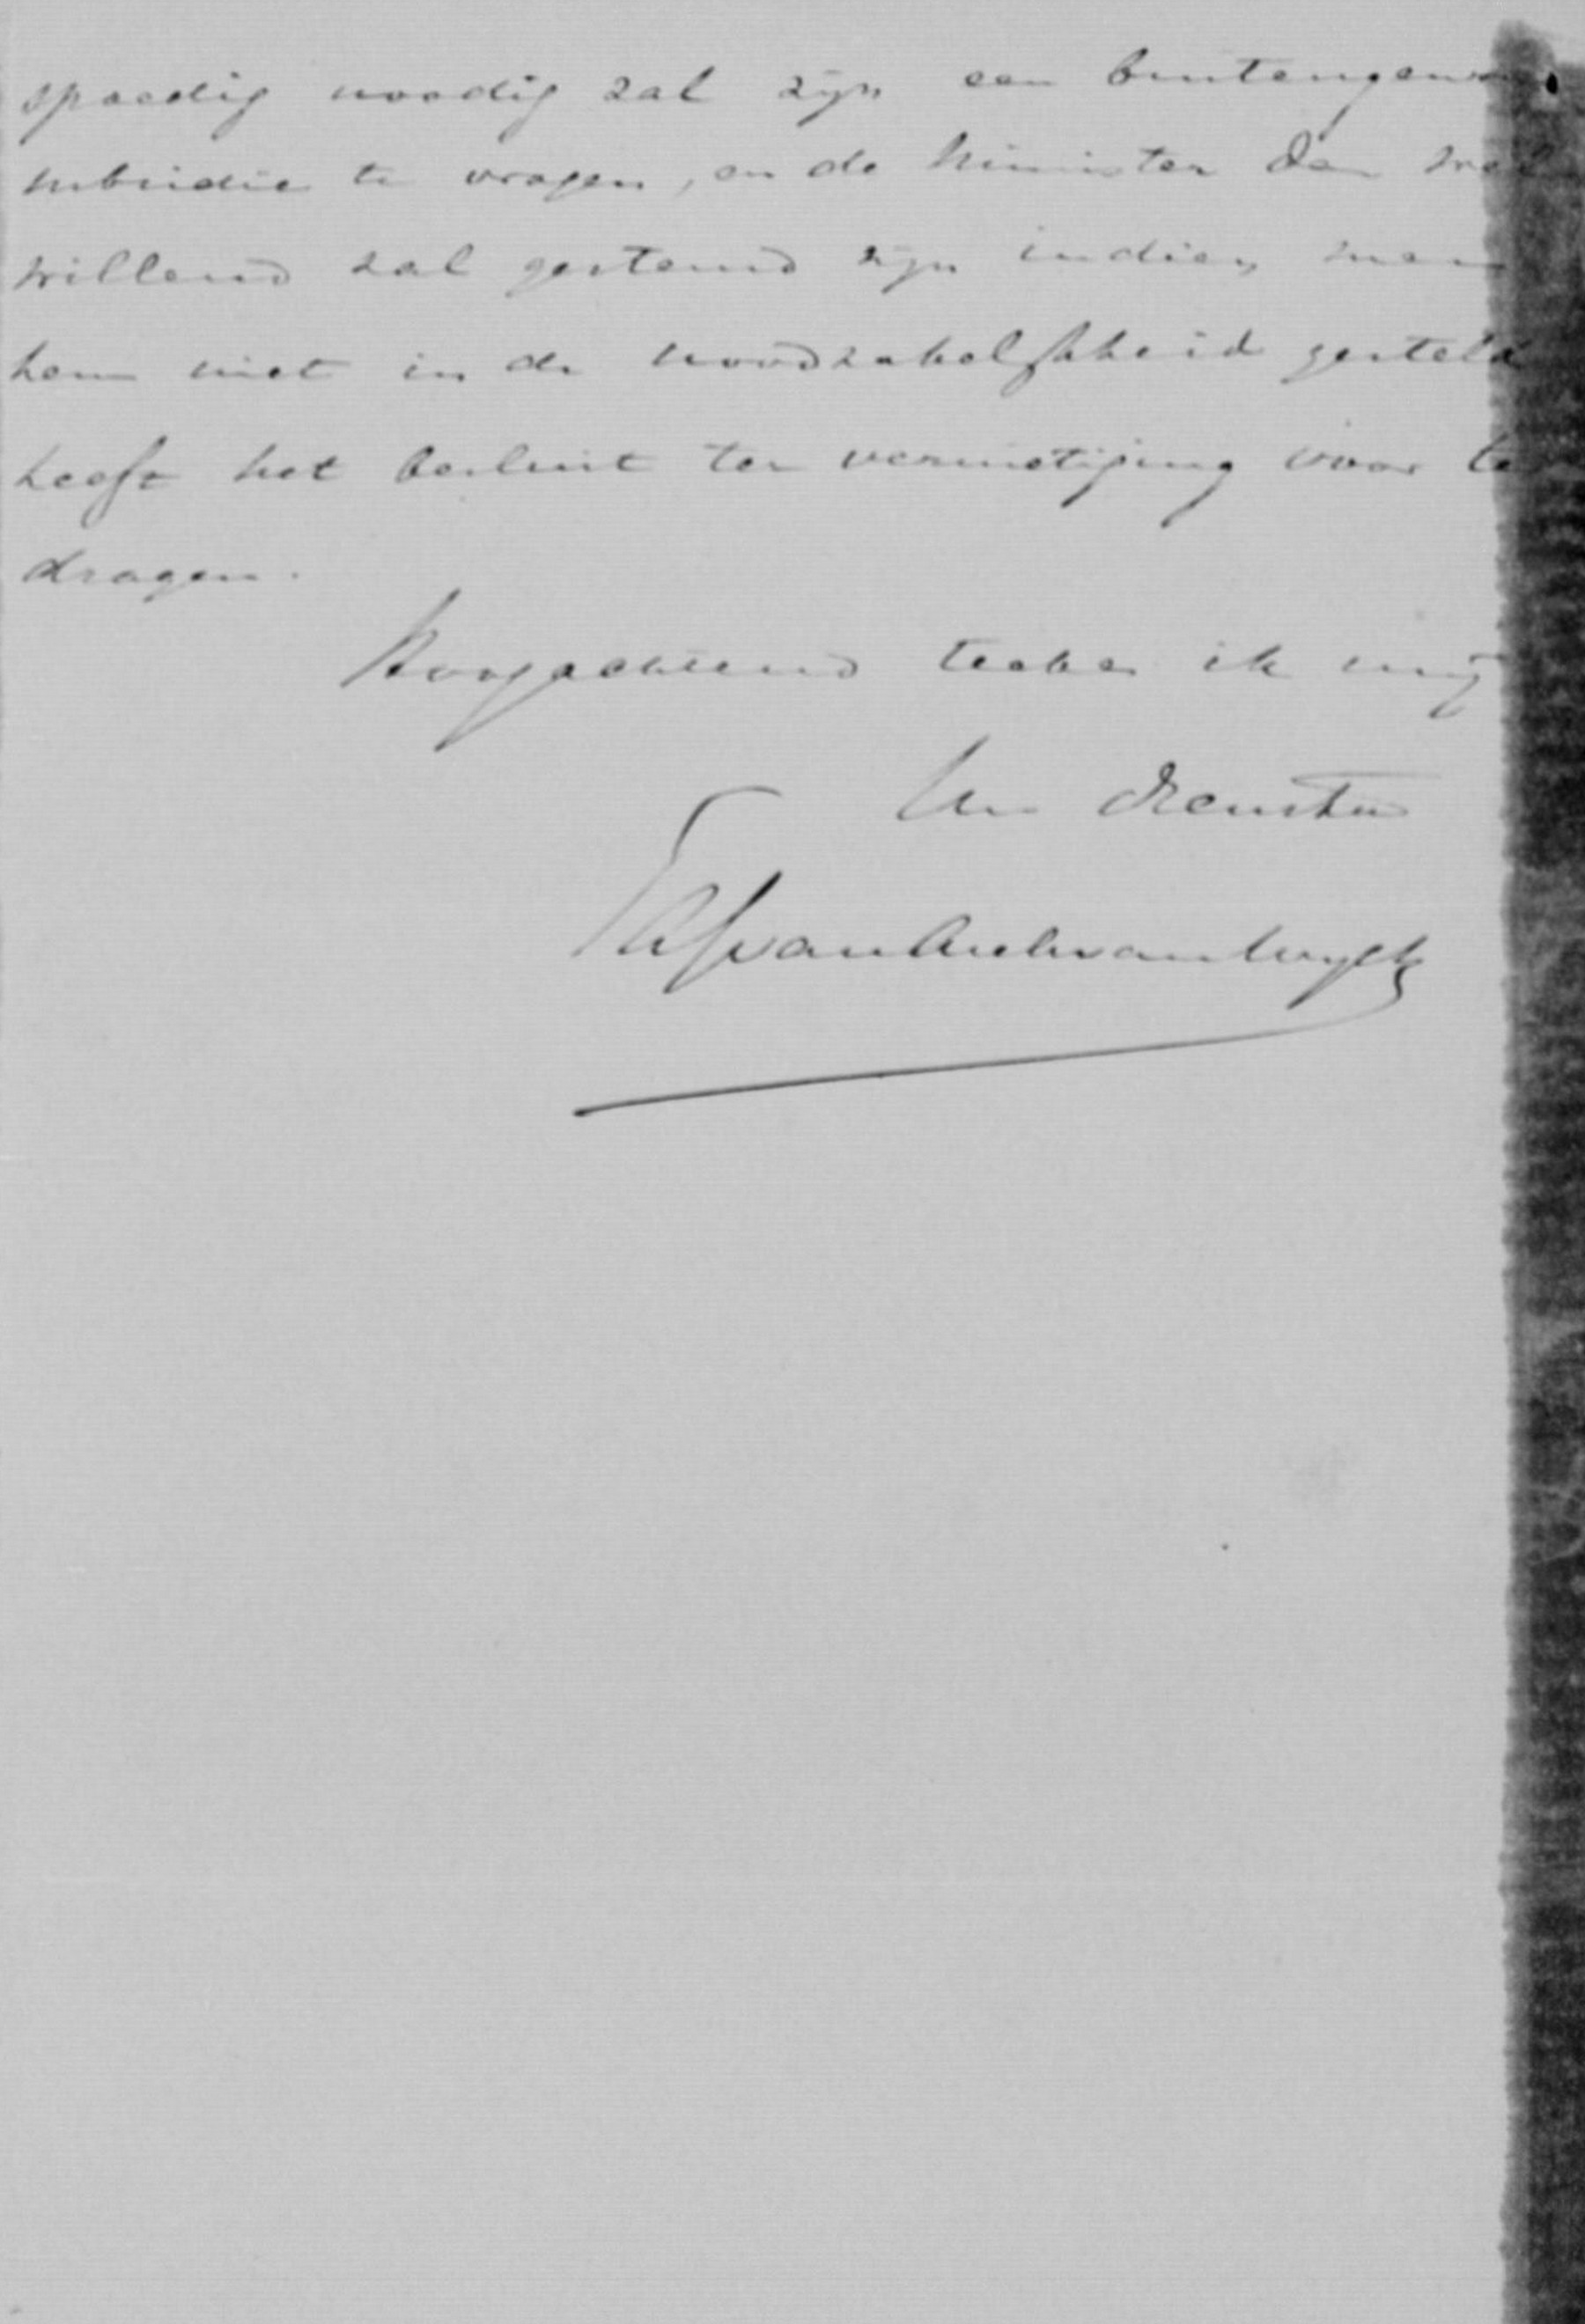 spoedig noodig zal zijn een buitengewoon
subsidie te vragen, en de Minister dan wel
willend zal gestemd zijn indien men
hem niet in de noodzakelijkheid gesteld
heeft het besluit ter vernietiging voor te
dragen.
Hoogachtend teeken ik mij
Uw Dienstw